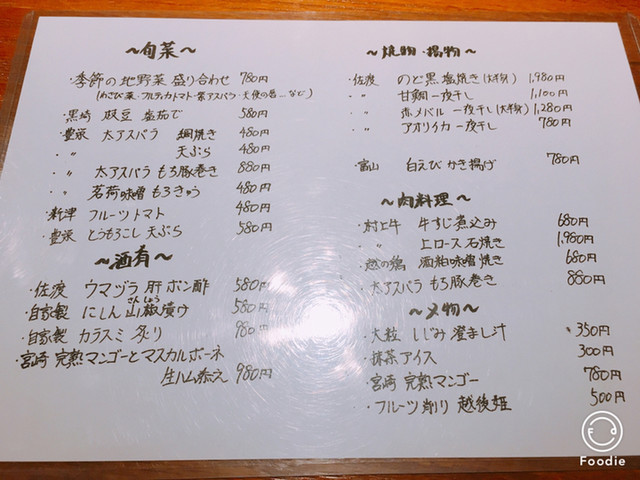 ～旬菜～
・季節の地野菜 盛り合わせ 780円
(わさび菜・フルティカトマト・紫アスパラ・天使の音…など)
・黒埼 枝豆 塩茹で 580円
・豊栄 太アスパラ 網焼き 480円
・〃 天ぷら 480円
・〃 太アスパラ もち豚巻き 880円
・〃 茗荷味噌 もろきゅう 480円
・新津 フルーツトマト 480円
・豊栄 とうもろこし 天ぷら 580円
～酒肴～
・佐渡 ウマヅラ 肝ポン酢 580円
・自家製 にしん 山椒漬け 580円
さんしょう
・自家製 カラスミ 炙り 980円
・宮崎 完熟マンゴーとマスカルポーネ
生ハム添え 980円
～焼物・揚物～
・佐渡 のど黒 塩焼き(大半身) 1,980円
・〃 甘鯛 一夜干し 1,100円
・〃 赤メバル 一夜干し(大半身) 1,280円
・〃 アオリイカ 一夜干し 780円
・富山 白えび かき揚げ 780円
～肉料理～
・村上牛 牛すじ煮込み 680円
・〃 上ロース 石焼き 1,980円
・越の鶏 酒粕味噌焼き 680円
・太アスパラ もち豚巻き 880円
～〆物～
・大粒 しじみ 澄まし汁 350円
・抹茶アイス 300円
・宮崎 完熟マンゴー 780円
・フルーツ削り 越後姫 500円
Foodie